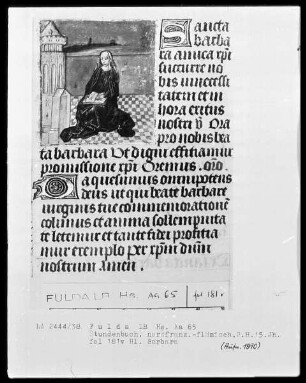 Sancta
barba
ra amica xpi
succurre no
bis in necessi
tatem et in
hora exitus
nostri ℣ Ora
pro nobis bea
ta barbara Ut digni efficiamur
promissione xpi Oremus. oro
Da quesumus omnipotens
deus ut qui beate barbare
virginis tue commemorationem
colimus et anima sollempnita
te letemur et tante fidei proficia
mur exemplo per xpm dnm
nostrum Amen.
FULDA LB Hs. Aa 65
fol 181v
LA 2444/38 Fulda LB Hs. Aa 65
Stundenbuch, nordfranz.-flämisch, 2.H.15.Jh.
fol 181v Hl. Barbara
(Aufn. 1970)